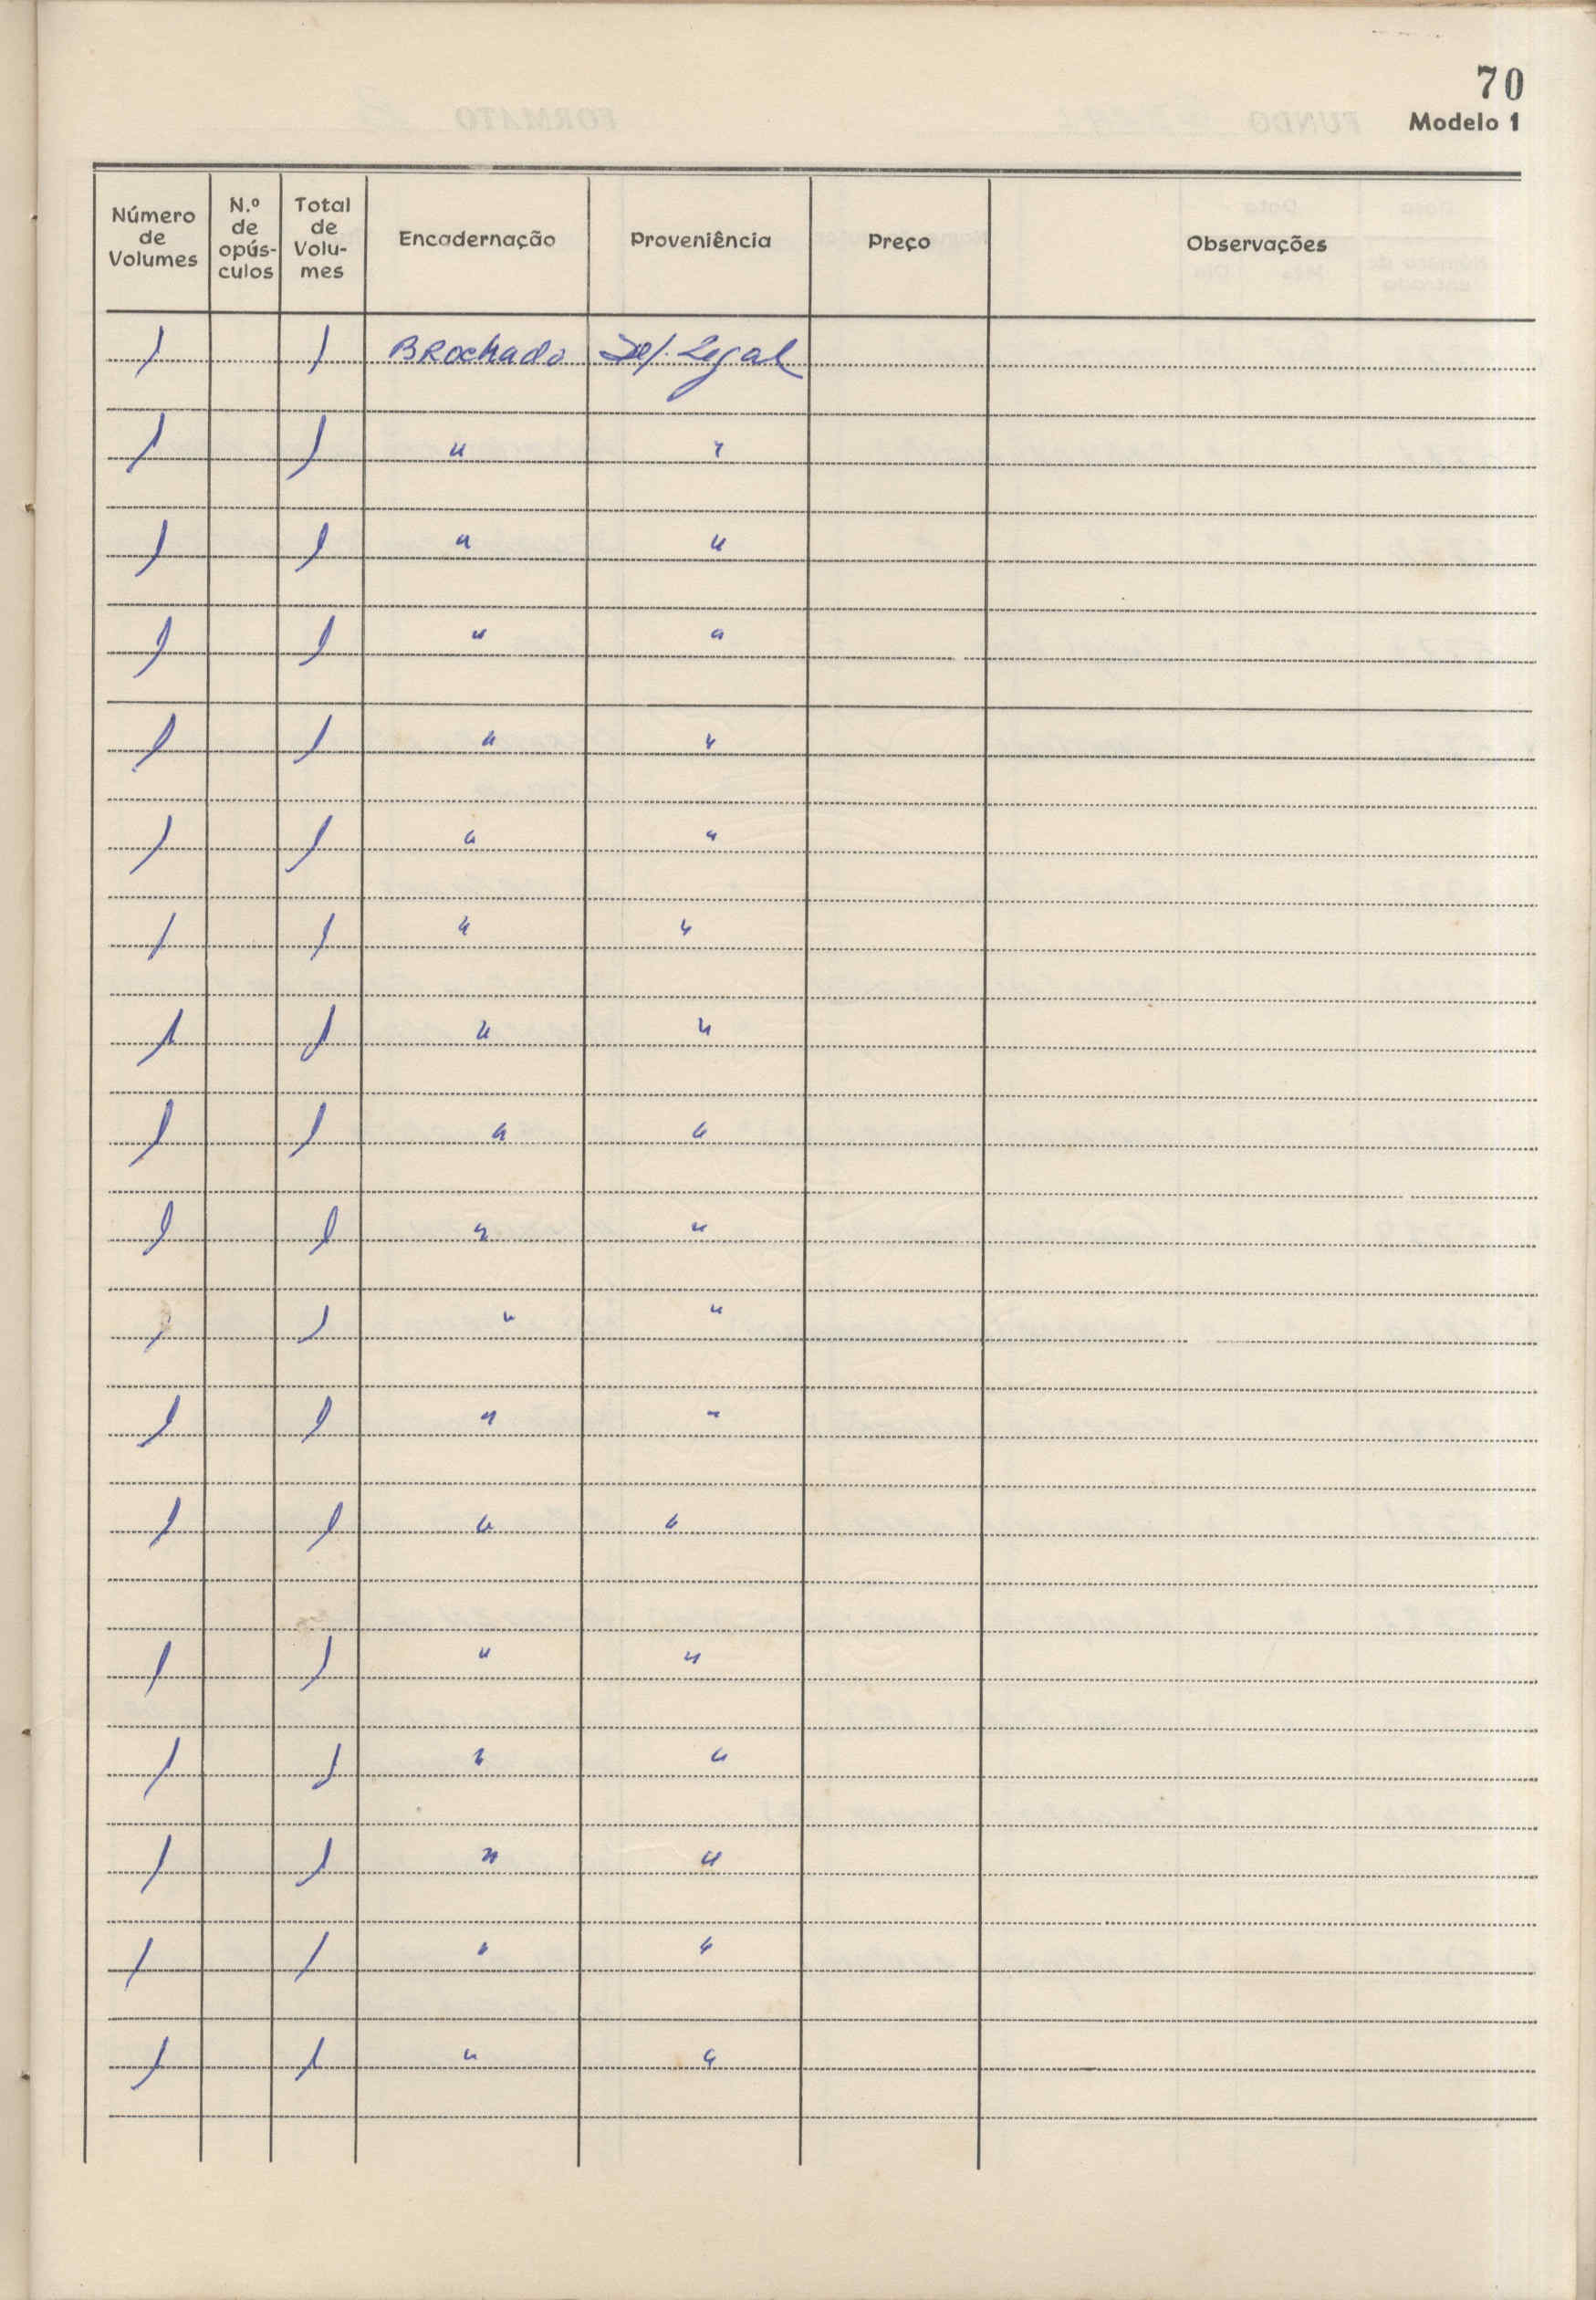 70
Modelo 1
Número de Volumes N.º de opús- culos Total de Volu- mes Encadernação Proveniência Preço Observações
1 1 Brochado Dep. Legal
1 1 " "
1 1 " "
1 1 " "
1 1 " "
1 1 " "
1 1 " "
1 1 " "
1 1 " "
1 1 " "
1 1 " "
1 1 " "
1 1 " "
1 1 " "
1 1 " "
1 1 " "
1 1 " "
1 1 " "